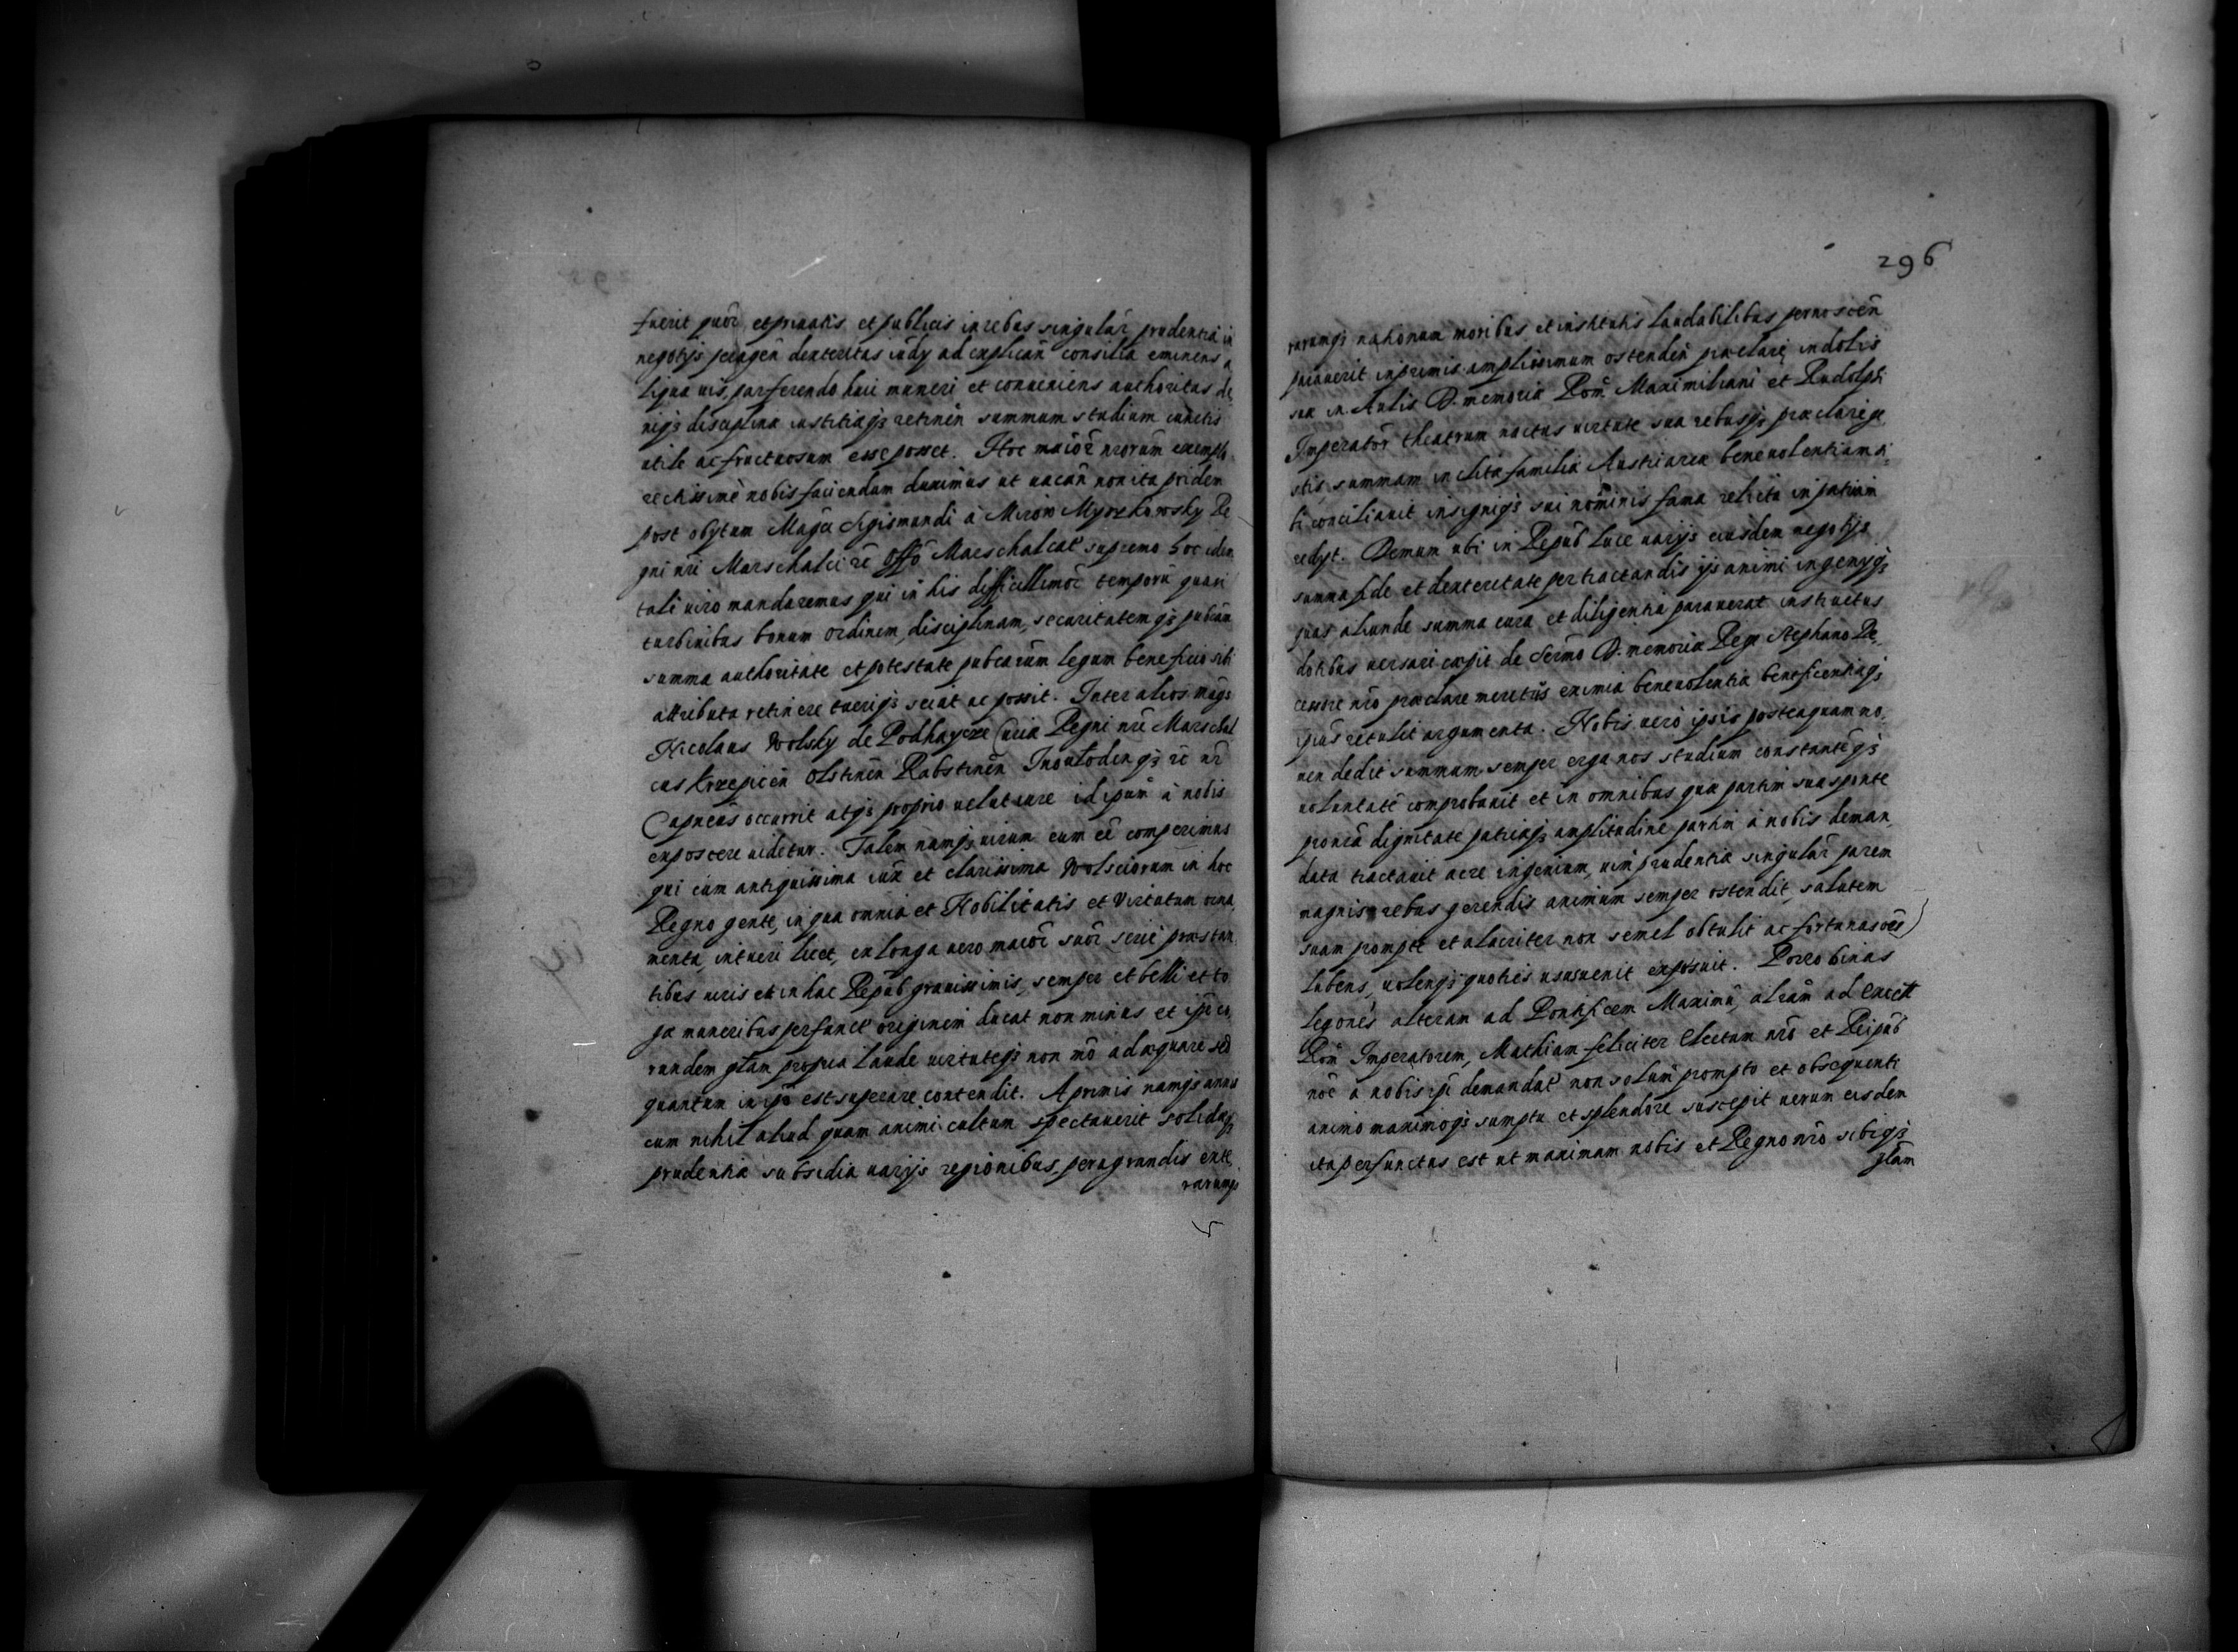 fuerit quōr et privatis et publicis in rebus singulār prudentia in
negotijs peragēn dexteritas iudy ad explicān consilia eminens a
liqua uis, par ferendo huic muneri et conveniens authoritas de
niq3 disciplina iustitiaq3 retinēn summum studium cunctis
utile ac fructuosum esse posset. Hoc maiōr nrōrum exemplo
rectissimè nobis faciendum duximus ut vacān non ita pridem
post obytum Magci Sigismundi à Mirow Myszkowsky Re
gni nri Marschalci rē offō Marschalcat supremo hoc idem
tali viro mandaremus qui in his difficillimōr temporū quasi
turbinibus bonum ordinem, disciplinam, securitatemq3 publicam
summa authoritate et potestate publicarūm legum beneficio sibi
attributa retinere tuerıq3 sciat ac possit. Inter alios mags
Nicolaus Wolsky de Podhaycze Curia Regni nri Marschal
cus Krzepicēn Olstinēn Rabstinēn Inowlodenq3 rē nr
Capneus occurrit atq3 proprio velut iure id ipsum à nobis
exposcere videtur. Talem namq3 virum eum eē comperimus
qui cum antiquissima iux et clarissima Wolsciorum in hoc
Regno gente, in qua omnia et Nobilitatis et Virtutum orna
menta, intueri licet, ex longa vero maiōr suōr serie præstan
tibus viris et in hac Repub gravissimis, semper et belli et to
gæ muneribus perfunct originem ducat non minus et ipē eo
rundem glām propria laude virtuteq3 non mō adæquare sed
quantum in ipō est superare contendit. A primis namq3 annis
cum nihil aliud quam animi cultum spectaverit solidaq3
prudentia subsidia varijs regionibus, peragrandis exte
rarumq3
296
rarumq3 nationum moribus et institutis laudabilibus pernoscēn
paraverit inprimis amplissimum ostendēn præclaræ indolis
suæ in Aulis D. memoria Rom. Maximiliani et Rudolphi
Imperatōr theatrum nactus virtute sua rebusq3 præclare ge
stis, summam inclita familia Austriaca benevolentiam si
bi conciliavit insigniq3 sui nominis fama relicta in patriam
redyt. Demum ubi in Repub luce varijs eiusdem negotijs
summa fide et dexteritate pertractandis ijs animi ingenyq3
quas aliunde summa cura et diligentia paraverat instructus
dotibus versari cœpit de Sermō D. memoria Rege Stephano Re
cessore nrō præclare meretus eximia benevolentia beneficentiaq3
ipius retulit argumenta. Nobis verò ipsis posteaquam no
men dedit summam semper erga nos studium constantēq3
voluntatē comprobavit et in omnibus quæ partim sua sponte
pro nrā dignitate patriaq3 amplitudine partim à nobis deman
data tractavit acre ingenium, vim prudentia singulār parem
magnis rebus gerendis animum semper ostendit, salutem
suam prompte et alacriter non semel obtulit ac fortunas oēs
lubens, volensq3 quoties usus venit exposuit. Porro binas
legonēs alteram ad Pontificem Maximū, aliām ad Excell
Rom Imperatorem, Mathiam feliciter Electum nrō et Reipub
noē a nobis ipī demandat non solum prompto et obsequenti
animo maximoq3 sumptu et splendore suscepit verum eisdem
ita perfunctus est ut maximam nobis et Regno nrō sibiq3
glām